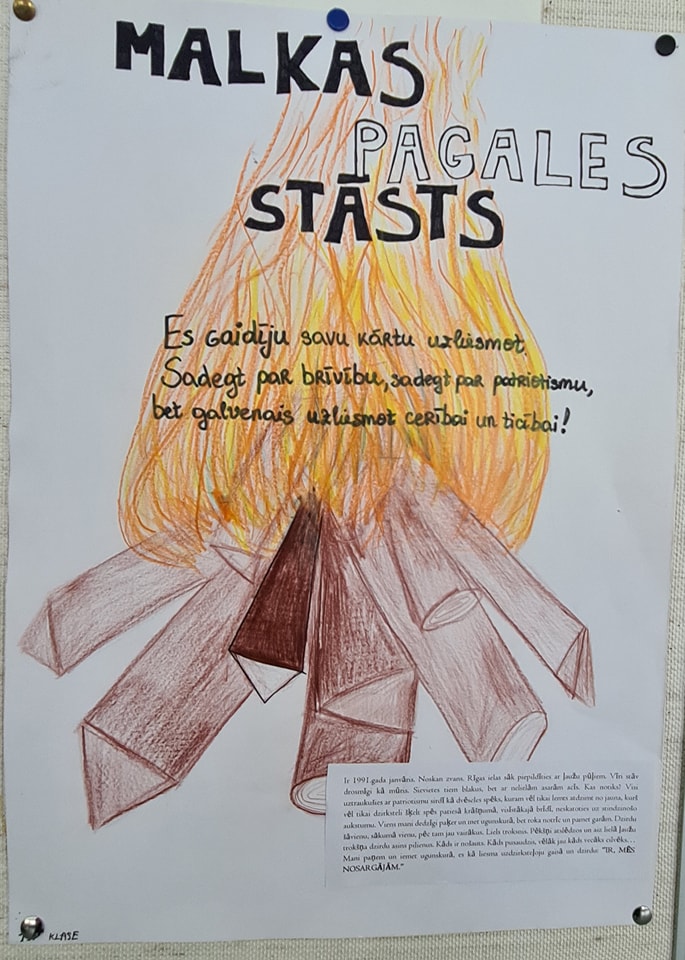 MALKAS
PAGALES
STĀSTS
Es gaidīju savu kārtu uzliesmot.
Sadegt par brīvību, sadegt par patriotismu,
bet galvenais uzliesmot cerībai un ticībai!
Ir 1991.gada janvāris. Noskan zvans. Rīgas ielas sāk piepildīties ar ļaužu pūļiem. Vīri stāv
drosmīgi kā mūris. Sievietes tiem blakus, bet ar nelielām asarām acīs. Kas notiks? Viss
uztraukušies ar patriotismu sirdī kā dvēseles spēks, kuram vēl tikai lemts atdzimt no jauna, kurš
vēl tikai dzirksteli šķels spēs patiesā krāšņumā, vislētākajā brīdī, neskatoties uz stindzinošo
aukstumu. Viens mani dedzīgi paķer un met ugunskurā, bet roka notrīc un pamet garām. Dzirdu
šāvienu, sākumā vienu, pēc tam jau vairākus. Liels troksnis. Pēkšņi atslēdzos un aiz lielā ļaužu
trokšņa dzirdu asins pilienus. Kāds ir nošauts. Kāds pusaudzis, vēlāk jau kāds vecāks cilvēks...
Mani paņem un iemet ugunskurā, es kā liesma uzdzirksteļoju gaisā un dzirdu: "IR, MĒS
NOSARGĀJĀM."
KLASE